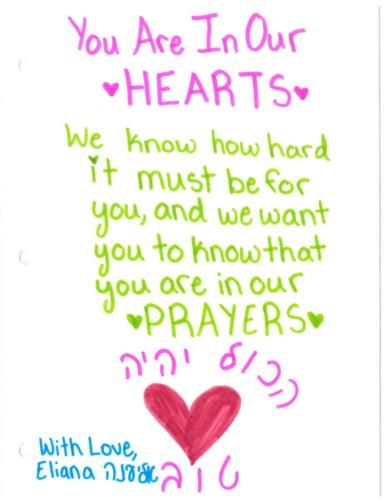 You Are In Our
♥HEARTS♥
We know how hard
it must be for
you, and we want
you to know that
you are in our
♥PRAYERS♥
הכול יהיה
טוב
With Love,
Eliana אליענה